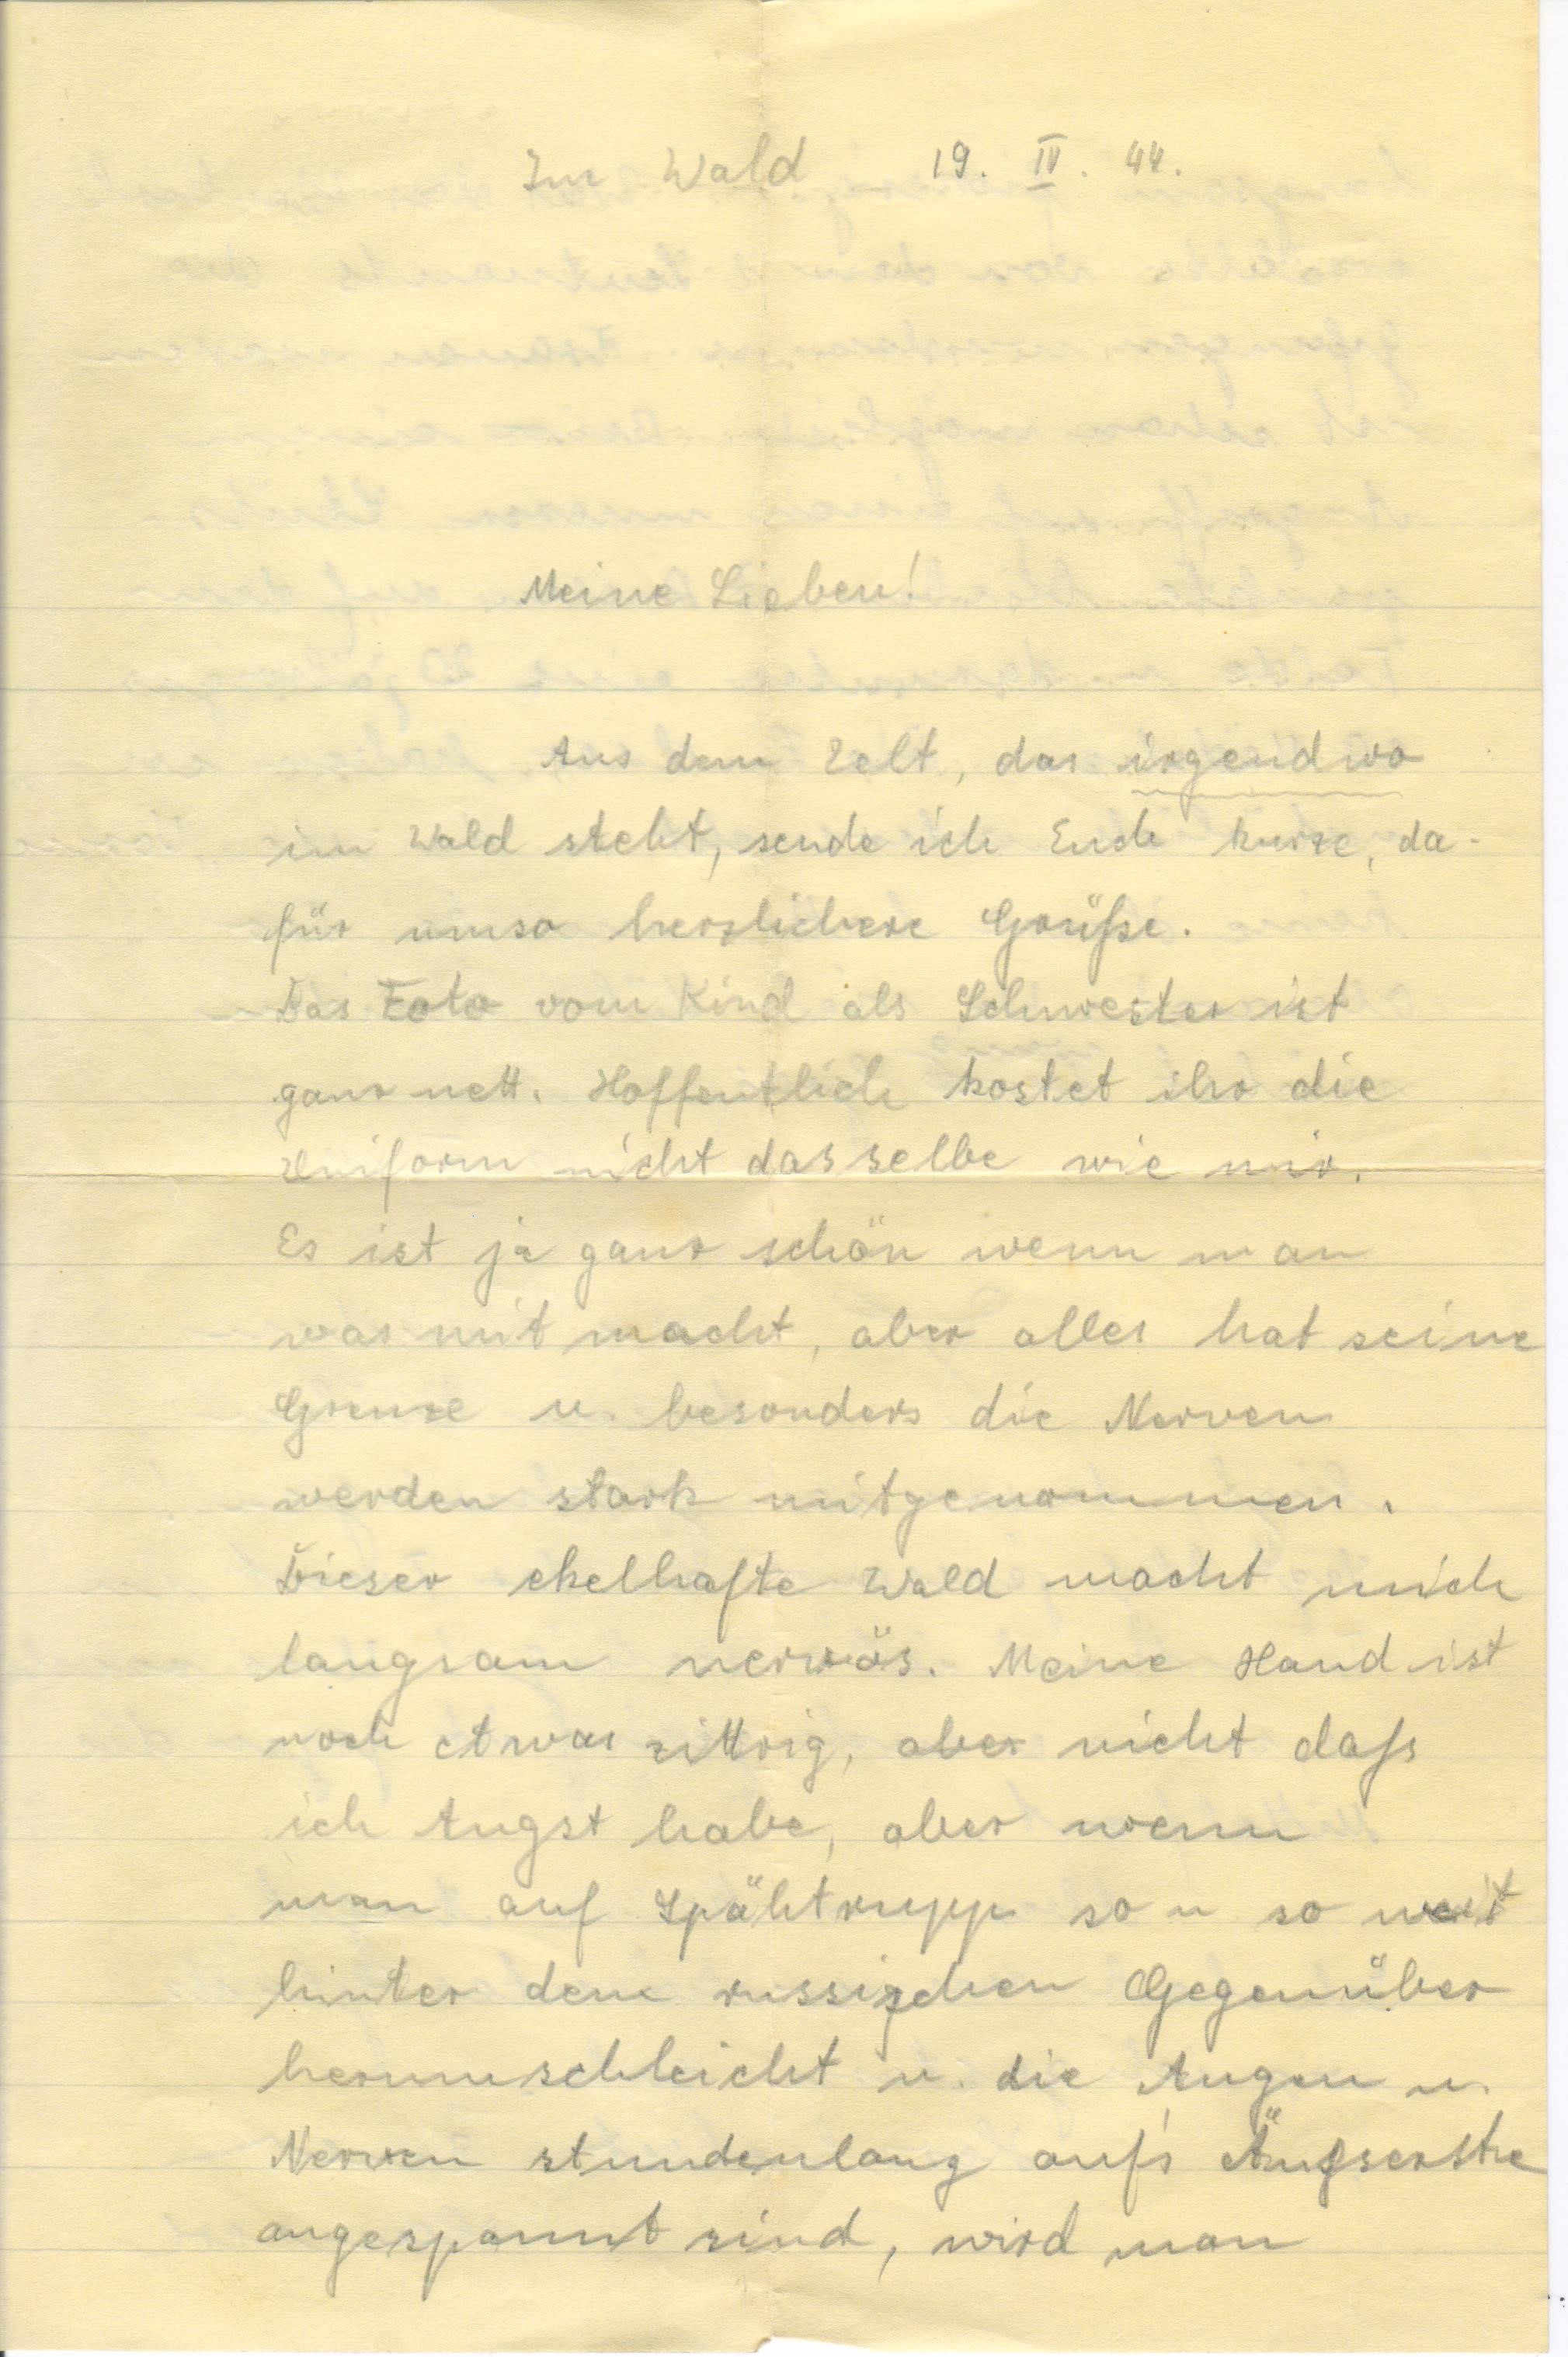 Im Wald 19. IV. 44.
Meine Lieben!
Aus dem Zelt, das irgendwo
im Wald steht, sende ich Euch kurze, da-
für umso herzlichere Grüße.
Das Foto vom Kind als Schwester ist
ganz nett. Hoffentlich kostet ihr die
Uniform nicht dasselbe wie mir.
Es ist ja ganz schön wenn man
was mit macht, aber alles hat seine
Grenze u. besonders die Nerven
werden stark mitgenommen.
Dieser ekelhafte Wald macht mich
langsam nervös. Meine Hand ist
noch etwas zittrig, aber nicht daß
ich Angst habe, aber wenn
man auf Spähtrupp so u so weit
hinter dem russischen Gegenüber
herumschleicht u. die Augen u.
Nerven stundenlang auf's Äußerste
angespannt sind, wird man